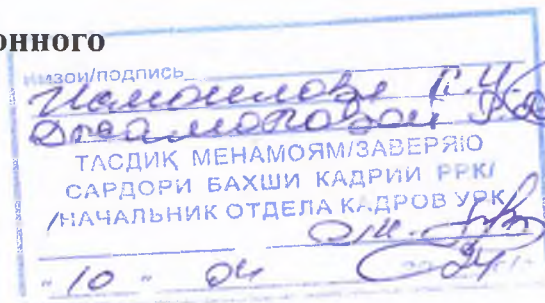 онного
имзои/подпись
Исмоилова Г.И.
ТАСДИҚ МЕНАМОЯМ/ЗАВЕРЯЮ
САРДОРИ БАХШИ КАДРИИ РРК/
/НАЧАЛЬНИК ОТДЕЛА КАДРОВ УРК
"10" 04 24